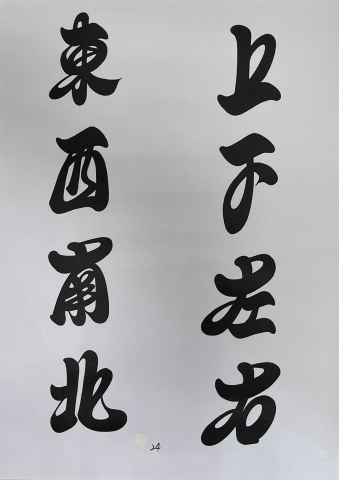 上下左右
東西南北
24